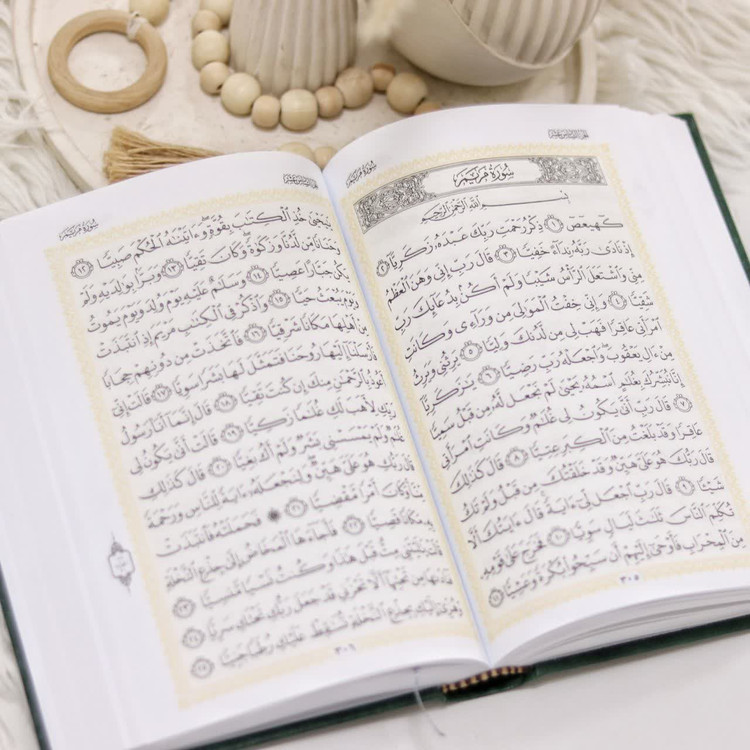 سُورَةُ مَرْيَمَ
الجزء السادس عشر
سُورَةُ مَرْيَمَ
بِسْمِ ٱللَّهِ ٱلرَّحْمَٰنِ ٱلرَّحِيمِ
كٓهيعٓصٓ ١ ذِكْرُ رَحْمَتِ رَبِّكَ عَبْدَهُۥ زَكَرِيَّآ ٢
إِذْ نَادَىٰ رَبَّهُۥ نِدَآءً خَفِيًّا ٣ قَالَ رَبِّ إِنِّي وَهَنَ ٱلْعَظْمُ
مِنِّي وَٱشْتَعَلَ ٱلرَّأْسُ شَيْبًا وَلَمْ أَكُنۢ بِدُعَآئِكَ رَبِّ
شَقِيًّا ٤ وَإِنِّي خِفْتُ ٱلْمَوَٰلِيَ مِن وَرَآءِي وَكَانَتِ
ٱمْرَأَتِي عَاقِرًا فَهَبْ لِي مِن لَّدُنكَ وَلِيًّا ٥ يَرِثُنِي وَيَرِثُ
مِنْ ءَالِ يَعْقُوبَ وَٱجْعَلْهُ رَبِّ رَضِيًّا ٦ يَٰزَكَرِيَّآ
إِنَّا نُبَشِّرُكَ بِغُلَٰمٍ ٱسْمُهُۥ يَحْيَىٰ لَمْ نَجْعَل لَّهُۥ مِن قَبْلُ سَمِيًّا
٧ قَالَ رَبِّ أَنَّىٰ يَكُونُ لِي غُلَٰمٌ وَكَانَتِ ٱمْرَأَتِي
عَاقِرًا وَقَدْ بَلَغْتُ مِنَ ٱلْكِبَرِ عِتِيًّا ٨ قَالَ كَذَٰلِكَ
قَالَ رَبُّكَ هُوَ عَلَيَّ هَيِّنٌ وَقَدْ خَلَقْتُكَ مِن قَبْلُ وَلَمْ تَكُ
شَيْـًٔا ٩ قَالَ رَبِّ ٱجْعَل لِّيٓ ءَايَةً قَالَ ءَايَتُكَ أَلَّا
تُكَلِّمَ ٱلنَّاسَ ثَلَٰثَ لَيَالٍ سَوِيًّا ١٠ فَخَرَجَ عَلَىٰ قَوْمِهِۦ
مِنَ ٱلْمِحْرَابِ فَأَوْحَىٰٓ إِلَيْهِمْ أَن سَبِّحُوا۟ بُكْرَةً وَعَشِيًّا ١١
٣٠٥
الجزء السادس عشر
سُورَةُ مَرْيَمَ
يَٰيَحْيَىٰ خُذِ ٱلْكِتَٰبَ بِقُوَّةٍ وَءَاتَيْنَٰهُ ٱلْحُكْمَ صَبِيًّا ١٢
وَحَنَانًا مِّن لَّدُنَّا وَزَكَوٰةً وَكَانَ تَقِيًّا ١٣ وَبَرًّۢا بِوَٰلِدَيْهِ وَلَمْ
يَكُن جَبَّارًا عَصِيًّا ١٤ وَسَلَٰمٌ عَلَيْهِ يَوْمَ وُلِدَ وَيَوْمَ يَمُوتُ
وَيَوْمَ يُبْعَثُ حَيًّا ١٥ وَٱذْكُرْ فِي ٱلْكِتَٰبِ مَرْيَمَ إِذِ ٱنتَبَذَتْ
مِنْ أَهْلِهَا مَكَانًا شَرْقِيًّا ١٦ فَٱتَّخَذَتْ مِن دُونِهِمْ حِجَابًا
فَأَرْسَلْنَآ إِلَيْهَا رُوحَنَا فَتَمَثَّلَ لَهَا بَشَرًا سَوِيًّا ١٧ قَالَتْ إِنِّيٓ
أَعُوذُ بِٱلرَّحْمَٰنِ مِنكَ إِن كُنتَ تَقِيًّا ١٨ قَالَ إِنَّمَآ أَنَا۠ رَسُولُ
رَبِّكِ لِأَهَبَ لَكِ غُلَٰمًا زَكِيًّا ١٩ قَالَتْ أَنَّىٰ يَكُونُ لِي
غُلَٰمٌ وَلَمْ يَمْسَسْنِي بَشَرٌ وَلَمْ أَكُ بَغِيًّا ٢٠ قَالَ كَذَٰلِكِ
قَالَ رَبُّكِ هُوَ عَلَيَّ هَيِّنٌ وَلِنَجْعَلَهُۥٓ ءَايَةً لِّلنَّاسِ وَرَحْمَةً
مِّنَّا وَكَانَ أَمْرًا مَّقْضِيًّا ٢١ ۞ فَحَمَلَتْهُ فَٱنتَبَذَتْ
بِهِۦ مَكَانًا قَصِيًّا ٢٢ فَأَجَآءَهَا ٱلْمَخَاضُ إِلَىٰ جِذْعِ ٱلنَّخْلَةِ
قَالَتْ يَٰلَيْتَنِي مِتُّ قَبْلَ هَٰذَا وَكُنتُ نَسْيًا مَّنسِيًّا
٢٣ فَنَادَىٰهَا مِن تَحْتِهَآ أَلَّا تَحْزَنِي قَدْ جَعَلَ رَبُّكِ تَحْتَكِ سَرِيًّا
٢٤ وَهُزِّيٓ إِلَيْكِ بِجِذْعِ ٱلنَّخْلَةِ تُسَٰقِطْ عَلَيْكِ رُطَبًا جَنِيًّا ٢٥
٣٠٦